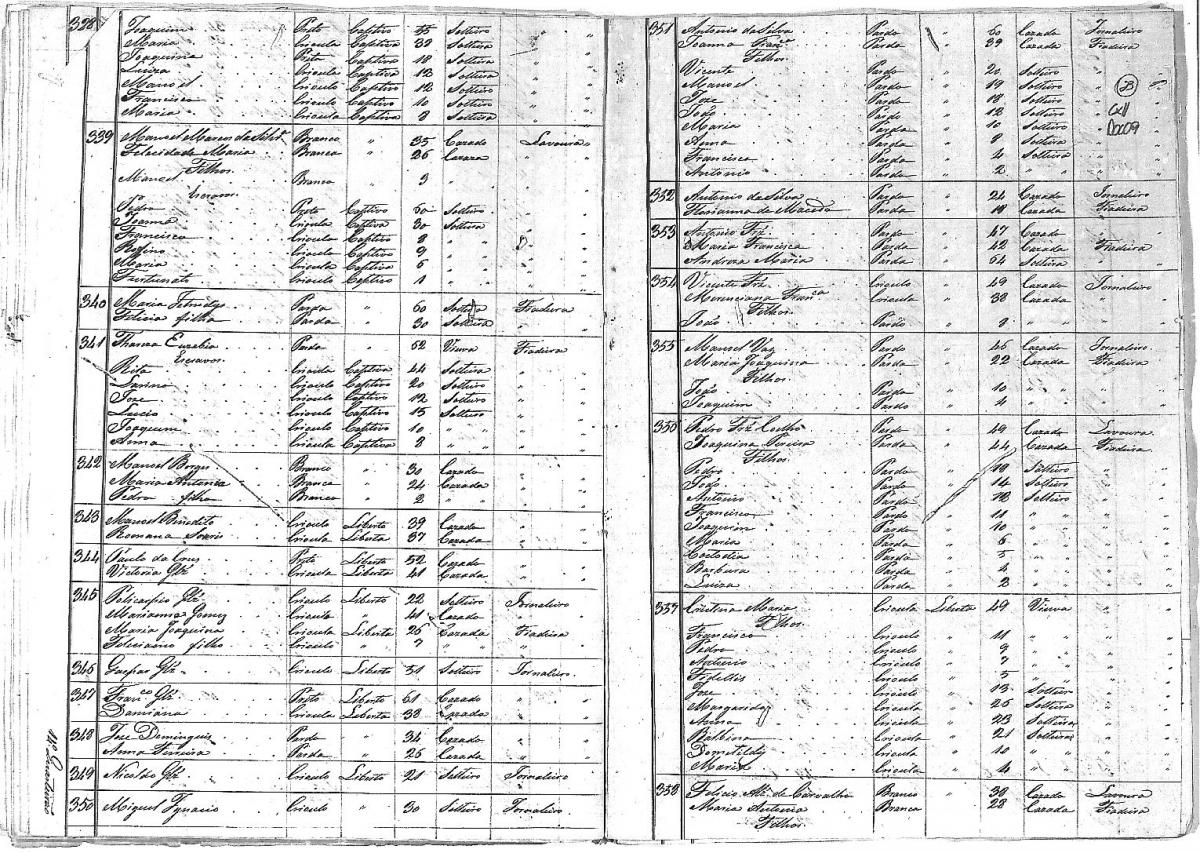 328 Joaquim Preto Captivo 35 Solteiro " "
Maria Crioula Captiva 39 Solteira " "
Joaquina Preta Captiva 18 Solteira " "
Luiza Crioula Captiva 12 Solteira " "
Manoel Crioulo Captivo 12 Solteiro "
Francisco Crioulo Captivo 10 Solteiro "
Maria Crioula Captiva 8 Solteira "
339 Manoel Branco " 35 Cazado Lavoura
Felicidade Maria Branca " 26 Cazada
Filhos
Manoel Branco " 3 "
Escravos
Pedro Preto Captivo 50 Solteiro
Joanna Crioula Captiva 30 Solteira
Francisco Crioulo Captivo 8 "
Rofino Crioulo Captivo
Maria Crioula Captiva "
Furtunato Crioulo Captivo 1 "
340 Maria Parda " 60 Fiadeira
Felicia filha Parda " 30 Solteira "
341 Eusebia Parda " 52 Viuva Fiadeira
Escravos
Rita Crioula Captiva 44 Solteira "
Crioulo Captivo 20 Solteiro "
Joze Crioulo Captivo 12 Solteiro "
Lucio Crioulo Captivo 15 Solteiro "
Joaquim Crioulo Captivo 10 " "
Anna Crioula Captiva 8 " "
342 Manoel Borges Branco " 30 Cazado
Maria Antonia Branca " 24 Cazada
Pedro filho Branco " 2 " "
343 Manoel Binedito Crioulo Liberto 39 Cazado
Romana Crioula Liberta 37 Cazada
344 Paulo da Cruz Preto Liberto 52 Cazado
Victoria Glz Crioula Liberta 41 Cazada
345 Policarpio Glz Crioulo Liberto 22 Solteiro Jornaleiro
Marianna Gomez Crioula " 41 "
Maria Joaquina Crioula Liberta 26 Cazada Fiadeira
Feliciano filho Crioulo " 7 " "
346 Gaspar Glz Crioulo Liberto 51 Solteiro Jornaleiro
347 Franco Glz Preto Liberto 61 Cazado
Damiana Crioula Liberta 38 Cazada
348 Joze Domingues Pardo " 34 Cazado
Anna Ferreira Parda " 26 Cazada
349 Glz Crioulo Liberto 21 Solteiro Jornaleiro
350 Miguel Ignacio Crioulo " 30 Solteiro Jornaleiro
351 Antonio da Silva Pardo " 60 Cazado Jornaleiro
Joanna Franca Parda " 39 Cazada Fiadeira
Filhos
Vicente Pardo " 20 Solteiro "
Manoel Pardo " 19 Solteiro "
Joze Pardo " 18 Solteiro "
João Pardo " 12 Solteiro "
Maria Parda " 10 Solteira "
Anna Parda " 8 Solteira "
Francisca Parda " 4 Solteira "
Antonio Pardo " 2 " "
B
CxII
Doc09
352 Antonio da Silva Pardo " 24 Cazado Jornaleiro
Florianna de Macedo Parda " 19 Cazada Fiadeira
353 Antonio Frz Pardo " 47 Cazado
Maria Francisca Parda " 42 Cazada Fiadeira
Andreza Maria Parda " 64 Solteira "
354 Vicente Frz Crioulo " 49 Cazado Jornaleiro
Franca Crioula " 38 Cazada "
Filhos
João Pardo " " "
355 Manoel Vaz Pardo " 46 Cazado Jornaleiro
Maria Joaquina Parda " 22 Cazada Fiadeira
Filhos
João Pardo " 10 " "
Joaquim Pardo " 4 " "
356 Pedro Frz Coelho Pardo " 49 Cazado Lavoura
Joaquina Pereira Parda " 44 Cazada Fiadeira
Filhos
Pedro Pardo " 19 Solteiro "
João Pardo " 14 Solteiro "
Antonio Pardo " Solteiro "
Francisco Pardo " 11 " "
Joaquim Pardo " 10 " "
Maria Parda " 6 " "
Costodia Parda " 5 " "
Barbara Parda " 4 " "
Luiza Parda " 2 " "
357 Cristina Maria Crioula Liberta 49 Viuva "
Filhos
Francisco Crioulo " 11 " "
Pedro Crioulo " 9 " "
Antonio Crioulo " 7 " "
Fidellis Crioulo " 5 " "
Joze Crioulo " 13 Solteiro "
Margarida Crioula " 26 Solteira "
Anna Crioula " 23 Solteira "
Balbina Crioula " 21 Solteira "
Domitildes Crioula " 10 " "
Maria Crioula " 4 " "
358 Felicio de Carvalho Branco " 38 Cazado Lavoura
Maria Antonia Branca " 28 Cazada Fiadeira
Filhos